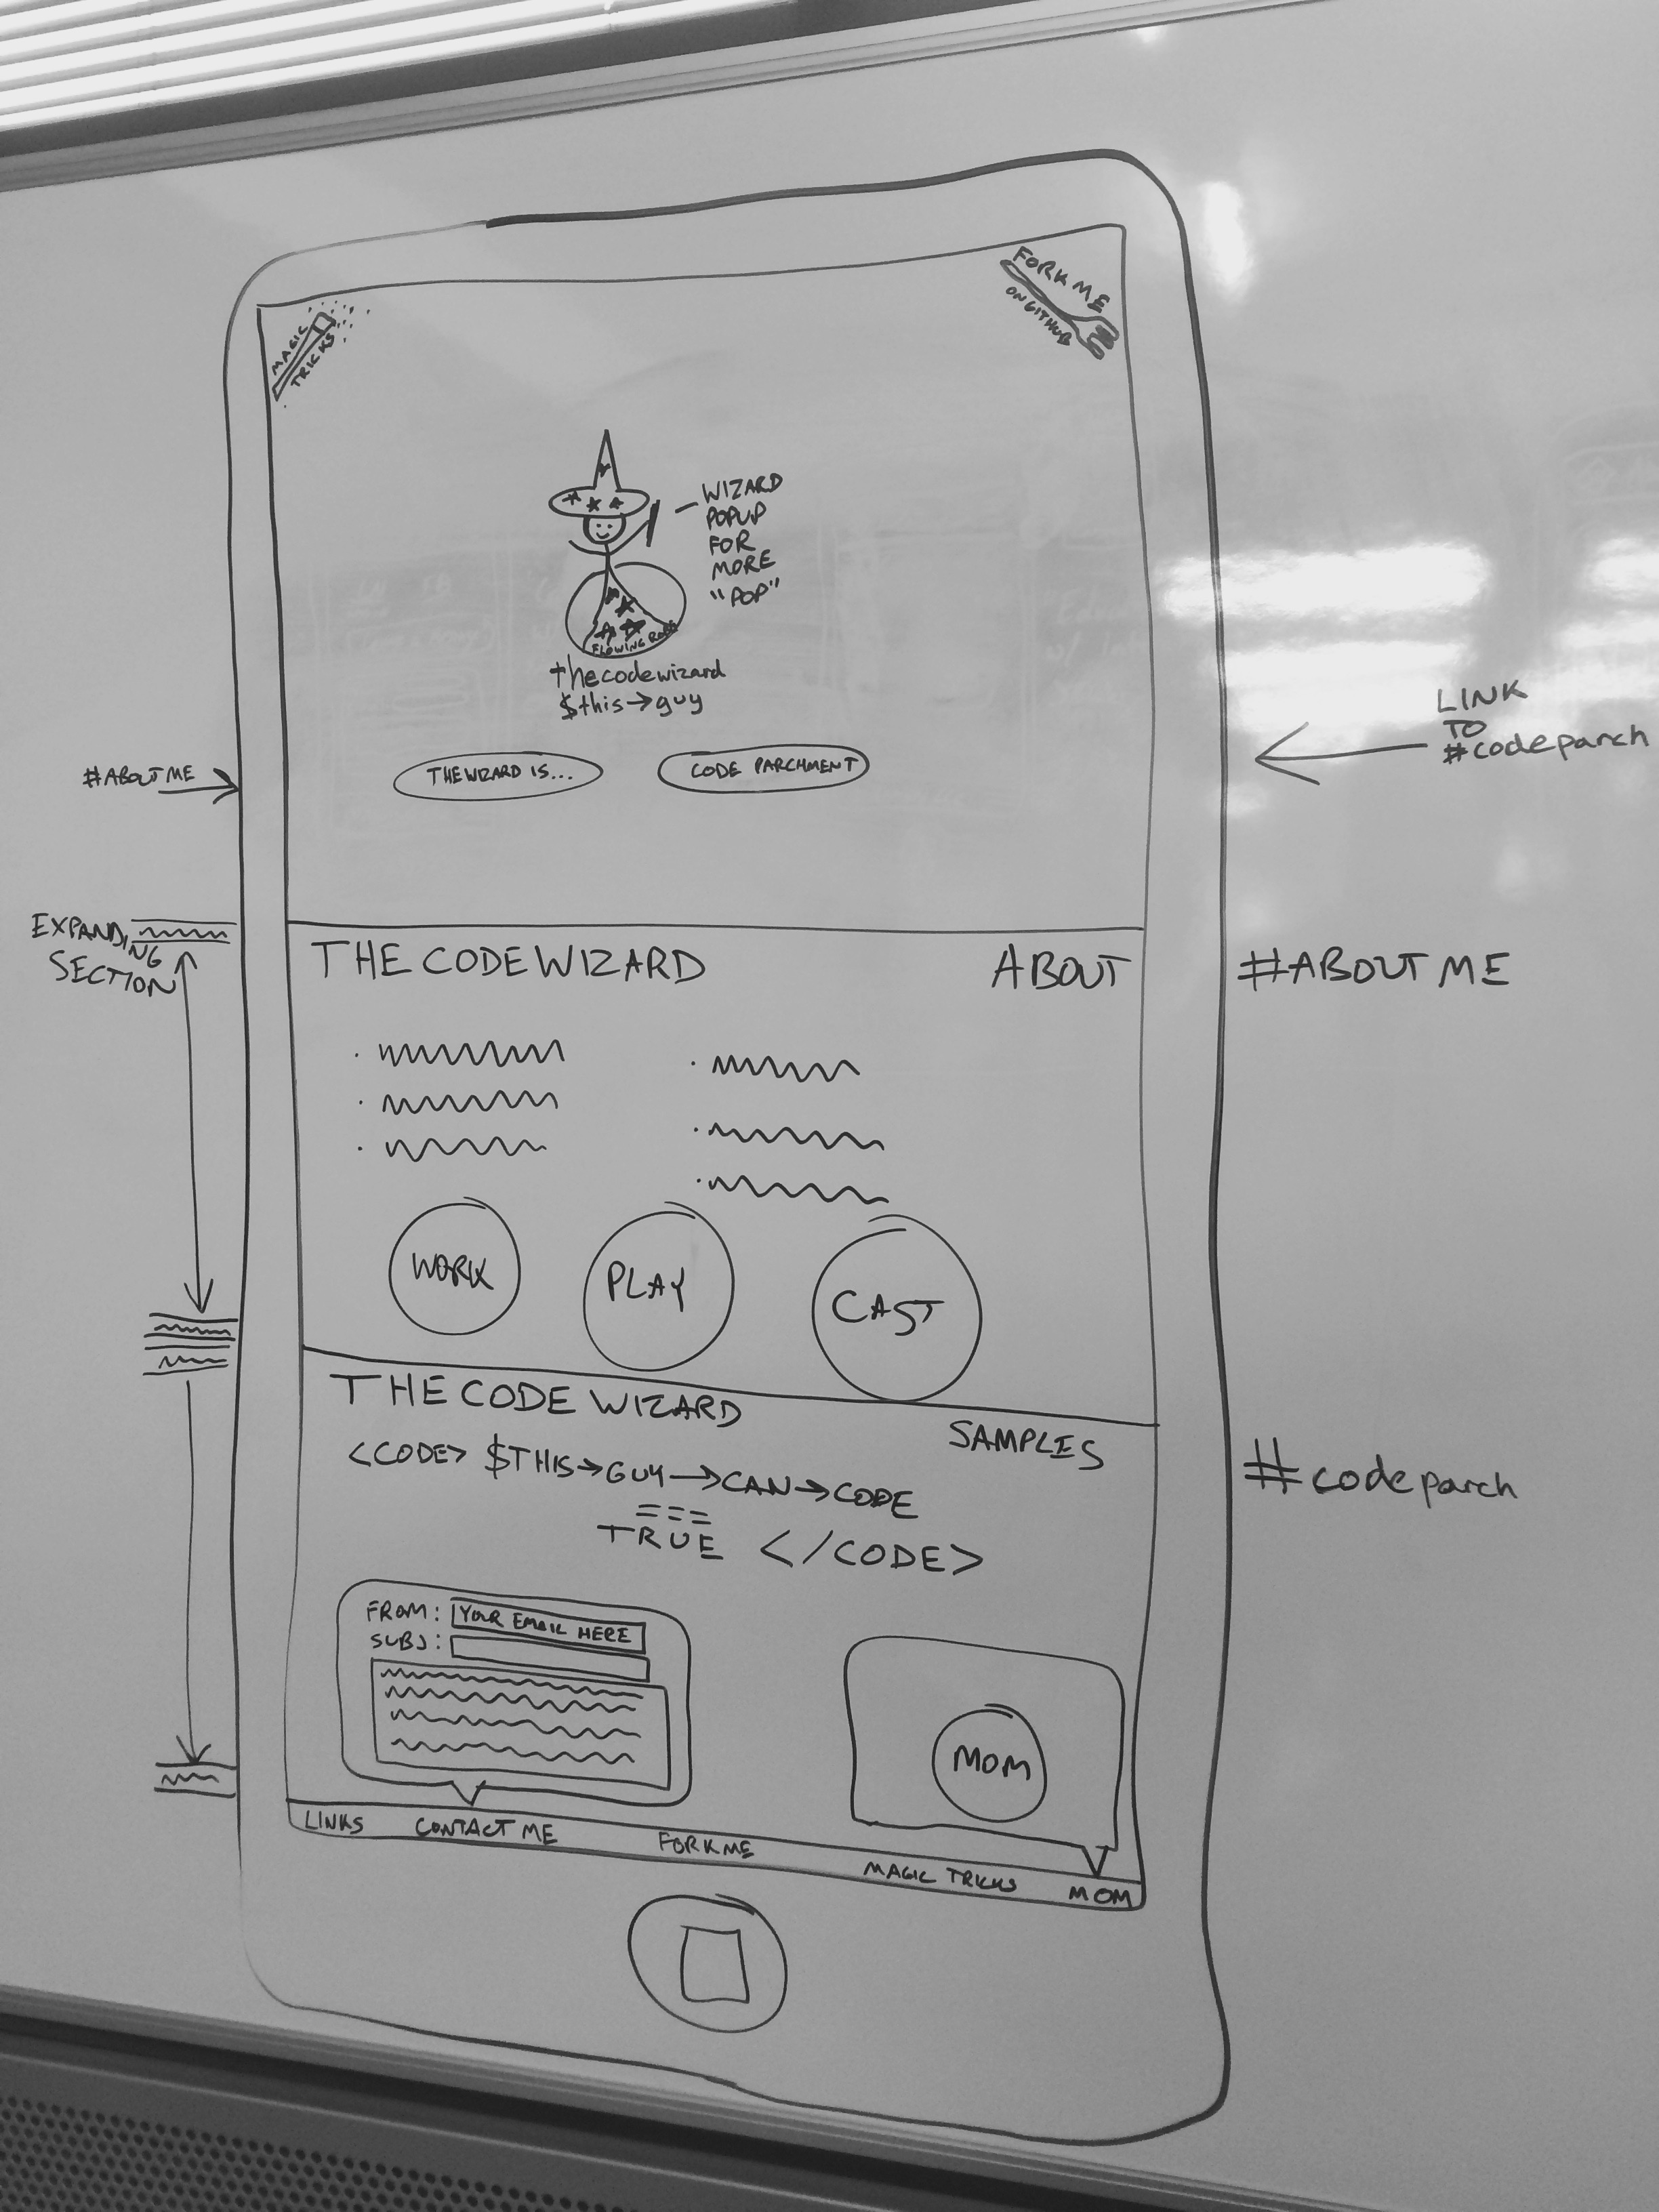 MAGIC
TRICKS
FORK ME
ON GITHUB
WIZARD
POPUP
FOR
MORE
"POP"
FLOWING ROBE
thecodewizard
$this→guy
THE WIZARD IS...
CODE PARCHMENT
#ABOUT ME
LINK
TO
#codeparch
EXPANDING
SECTION
THE CODE WIZARD
ABOUT
#ABOUT ME
WORK
PLAY
CAST
THE CODE WIZARD
SAMPLES
<CODE> $THIS→GUY→CAN→CODE
===
TRUE </CODE>
#codeparch
FROM: YOUR EMAIL HERE
SUBJ:
MOM
LINKS
CONTACT ME
FORK ME
MAGIC TRICKS
MOM